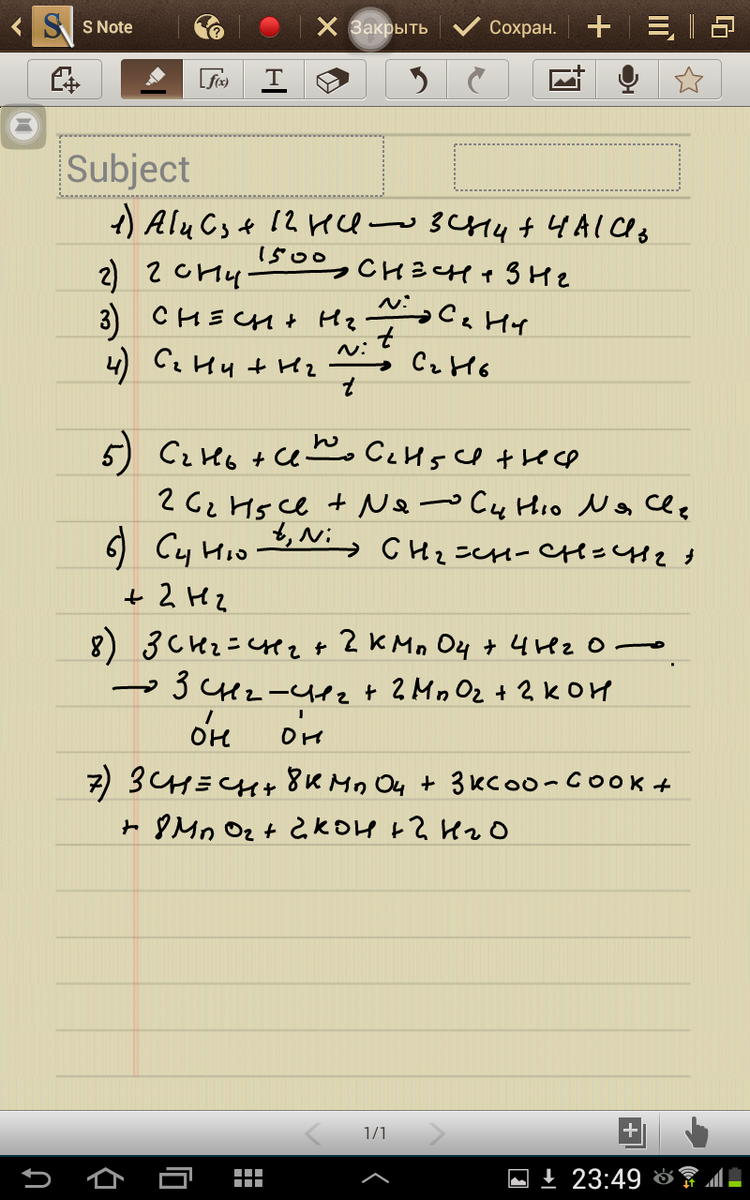 S Note
Закрыть
Сохран.
f(x)
T
Subject
1) Al4C3 + 12HCl → 3CH4 + 4AlCl3
2) 2CH4 1500→ CH≡CH + 3H2
3) CH≡CH + H2 Ni t→ C2H4
4) C2H4 + H2 Ni t→ C2H6
5) C2H6 + Cl → C2H5Cl + HCl
2C2H5Cl + Na → C4H10 NaCl2
6) C4H10 t, Ni→ CH2=CH-CH=CH2 +
+ 2H2
8) 3CH2=CH2 + 2KMnO4 + 4H2O →
→ 3CH2-CH2 + 2MnO2 + 2KOH
OH OH
7) 3CH≡CH + 8KMnO4 + 3KCOO-COOK +
+ 8MnO2 + 2KOH + 2H2O
1/1
23:49